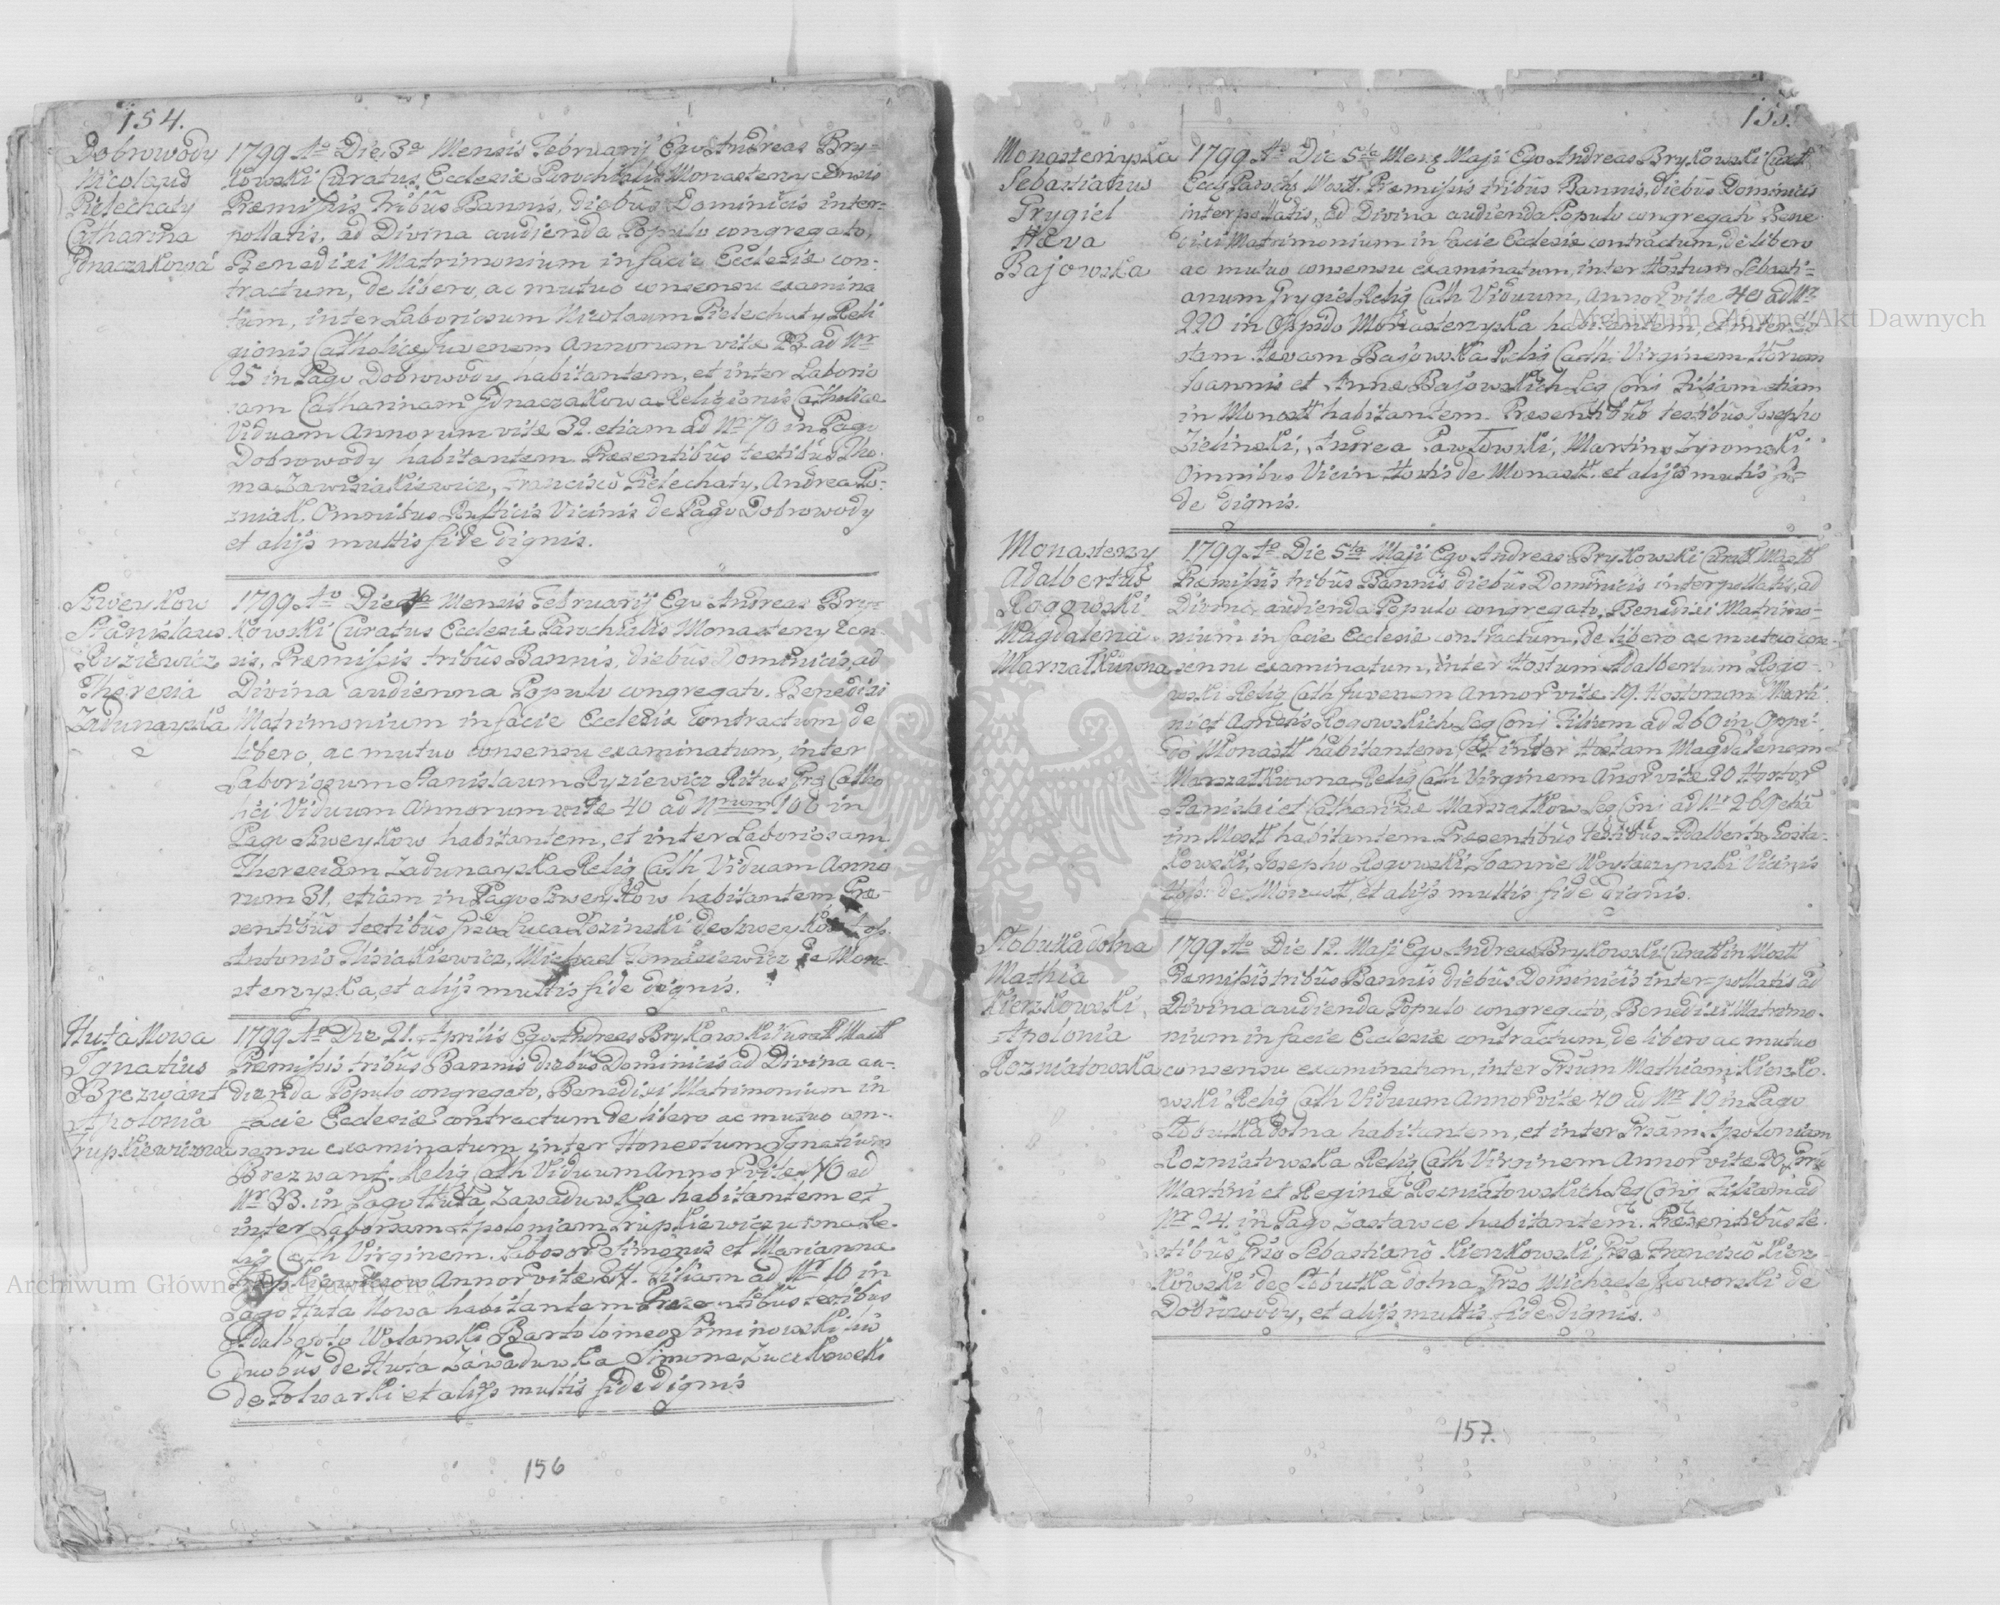 154.
Dobrowody
Nicolaus
Pielechaty
Catharina
Ignaczakowa
1799 Ao Die 3a Mensis Februarij Ego Andreas Bry-
kowski Curatus Ecclesiæ Parochialis Monasterycensis
Præmissis tribus Bannis, diebus Dominicis inter-
pollatis, ad Divina audienda Populo congregato,
Benedixi Matrimonium in facie Ecclesiæ con-
tractum, de libero, ac mutuo consensu examina
tum, inter Laboriosum Nicolaum Pielechaty Reli
gionis Catholicæ Juvenem Annorum vitæ 23 ad Nr
25 in Pago Dobrowody habitantem, et inter Laborio
sam Catharinam Ignaczakowa Religionis Catholicæ
Viduam Annorum vitæ 32. etiam ad Nr 70 in Pago
Dobrowody habitantem. Præsentibus testibus Tho-
ma Zawisiakiewicz, Francisco Pielechaty, Andrea Po-
zniak. Omnibus Rusticis Vicinis de Pago Dobrowody
et alijs multis fide dignis.
Szweykow
Stanislaus
Ryziewicz
Theresia
Zadunayska
1799 Ao Die Mensis Februarij Ego Andreas Bry-
kowski Curatus Ecclesiæ Parochialis Monasterycen-
sis, Præmissis tribus Bannis, diebus Dominicis, ad
Divina audienna Populo congregato. Benedixi
Matrimonium in facie Ecclesiæ contractum de
libero, ac mutuo consensu examinatum, inter
Laboriosum Stanislaum Ryziewicz Ritus Græ Catho
lici Viduum Annorum vitæ 40 ad Nrum 106 in
Pago Szweykow habitantem, et inter Laboriosam
Theresiam Zadunayska Relig Cath Viduam Anno
rum 31. etiam in Pago Szweykow habitantem Præ-
sentibus testibus Luca Rozinski de Szweykow
Antonio Misiakiewicz, Michael Tomasiewicz de Mona-
sterzyska, et alijs multis fide dignis.
Huta Nowa
Ignatius
Brezwant
Apolonia
Trupkiewiczowa
1799 Ao Die 21. Aprilis Ego Andreas Brykowski Curatt Mastt
Præmissis tribus Bannis diebus Dominicis ad Divina au-
dienda Populo congregato, Benedixi Matrimonium in
facie Ecclesiæ contractum de libero ac mutuo con-
sensu examinatum inter Honestum Ignatium
Brezwant. Relig Cath Viduum Annor vitæ 40 ad
Nr 33. in Pago Huta Zawaduwka habitantem et
inter Laborsam Apoloniam Trupkiewiczuwna Re-
lig Cath Virginem. Labosor Simonis et Marianna
Annor vitæ Filiam ad Nr 10 in
Pago Huta Nowa habitantem Præsentibus testibus
Adalberto Wolanski Bartolomeo Siminowski
duobus de Huta Zawaduwka Simone Zuczkowski
de Folwarki et alijs multis fide dignis
156
155.
Monasterzyska
Sebastianus
Grygiel
Hæva
Bajowska
1799 Ao Die 5ta Mens Maji Ego Andreas Brykowski Curatt
Eccls Parochs Mostt. Præmissis tribus Bannis, diebus Dominicis
interpollatis, ad Divina audienda Populo congregato Bene-
dixi Matrimonium in facie Ecclesiæ contractum, de libero
ac mutuo consensu examinatum, inter Hostum Sebasti-
anum Grygiel Relig Cath Viduum, Annor vitæ 40 ad Nr
220 in Oppido Monasterzyska habitantem, et inter Ho
stam Hevam Bajowska Relig Cath Virginem Horum
Joannis et Anne Bajowskich Leg Conj Filiam etiam
in Monastt habitantem. Præsentibus testibus Josepho
Zielinski, Andrea Pawłowski, Martino Zyromski
Omnibus Vicin Hostis de Monastt. et alijs multis fi-
de dignis.
Monasterzy
Adalbertus
Rogowski
Magdalena
Marszałkuwna
1799 Ao Die 5ta Maji Ego Andreas Brykowski Curatt Mastt
Præmissis tribus Bannis diebus Dominicis interpollatis, ad
Divina audienda Populo congregato, Benedixi Matrimo-
nium in facie Ecclesiæ contractum, de libero ac mutuo con-
sensu examinatum, inter Hostum Adalbertum Rogo-
wski Relig Cath Juvenem Annor vitæ 19. Hostorum Marti
ni et Agnetis Rogowskich Leg Conj Filium ad 260 in Oppi-
do Monastt habitantem, et inter Hostam Magdalenam
Marszałkiuwna Relig Cath Virginem Anor vitæ 20 Hostor
Stanislai et Catharinæ Marszałkow Leg Conj ad Nr
in Mostt habitantem Præsentibus testibus Adalberto Posta-
kowski, Josepho Rogowski, Joanne Wystaczynski Vicinis
Hos: de Monastt, et alijs multis fide dignis.
Słobutka dolna
Mathia
Kierzkowski
Apolonia
Rozniatowska
1799 Ao Die 12. Maji Ego Andreas Brykowski Curatt in Mastt
Præmissis tribus Bannis diebus Dominicis inter-pollatis ad
Divina audienda Populo congregato, Benedixi Matrimo-
nium in facie Ecclesiæ contractum, de libero ac mutuo
consensu examinatum, inter Grsum Mathiam Kierzko-
wski Relig Cath Viduum Annor vitæ 40 ad Nr 19 in Pago
Słobutka dolna habitantem, et inter Grsam Apoloniam
Rozniatowska Relig Cath Virginem Annor vitæ 20,
Martini et Reginæ Rozniatowskich Leg Conj Filiam ad
Nr 24. in Pago Zastawce habitantem. Præsentibus te-
stibus Grso Sebastiano Kierzkowski Grso Francisco Kierz-
kowski de Słobutka dolna, Grso Michaele Jaworski de
Dobrowody, et alijs multis fide dignis.
157.
Archiwum Główne Akt Dawnych
Archiwum Główne Akt Dawnych